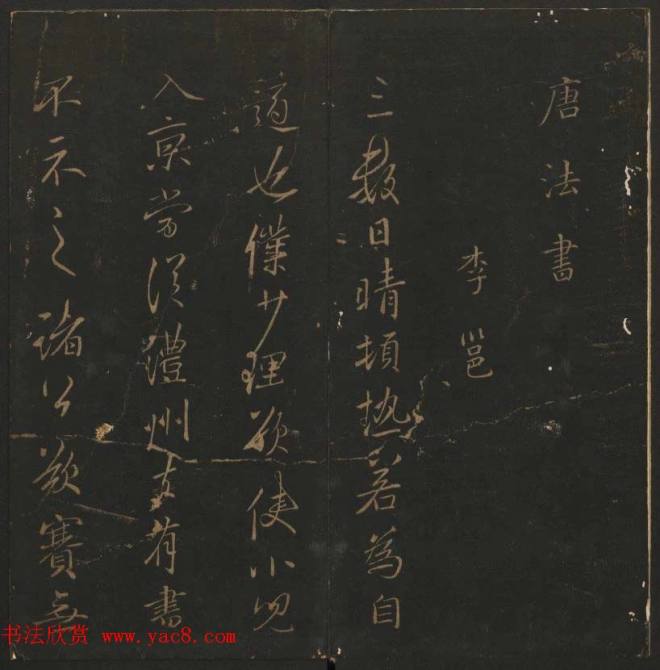 唐法書
李邕
三數日晴頓熱若為自
適也僕少理欲使小兒
入京當從澧州去有書
不示之諸公欲賽無
书法欣赏 www.yac8.com